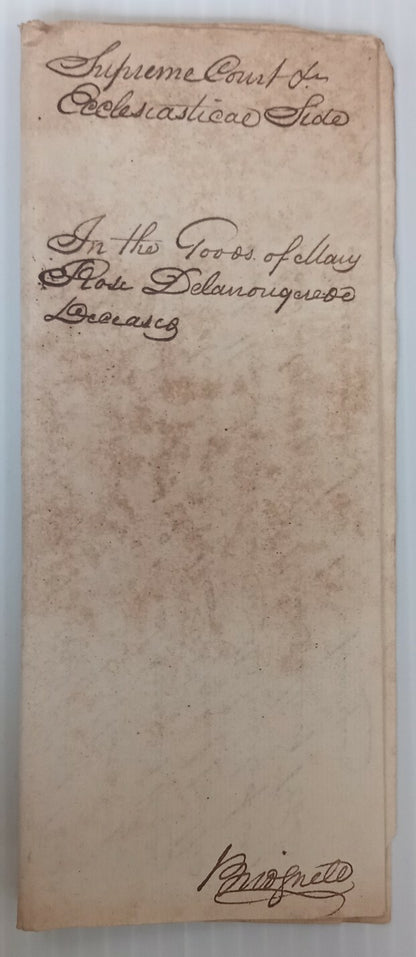 Supreme Court &c
Ecclesiastical Side
In the Goods of Mary
Rose Delanougerede
Deceased